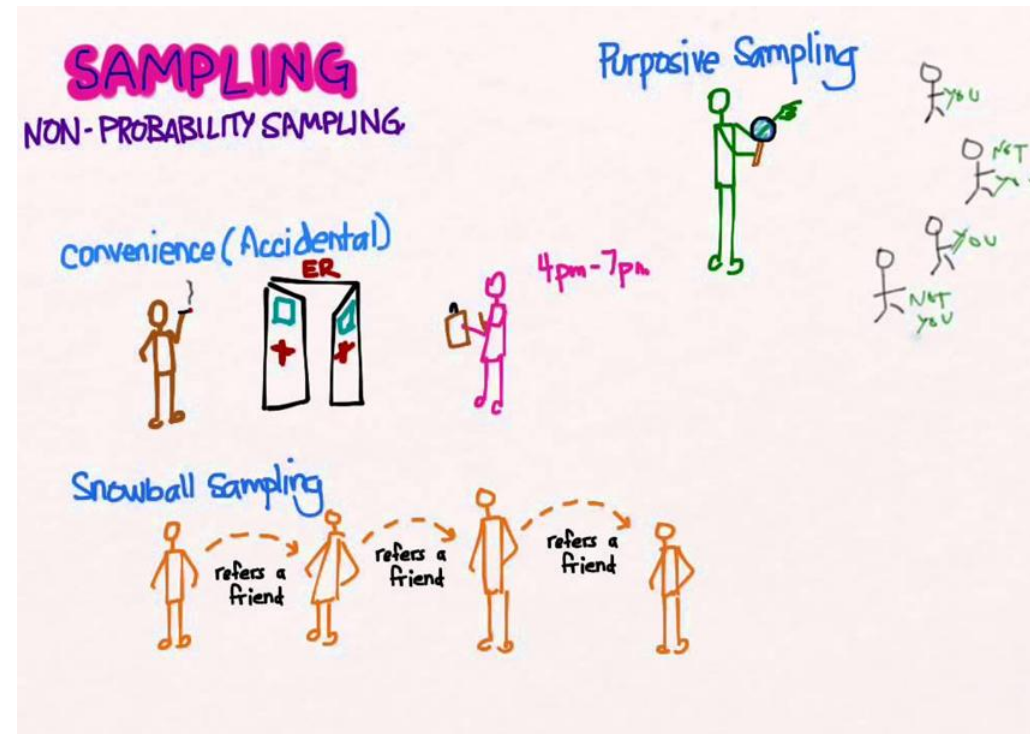 SAMPLING
NON-PROBABILITY SAMPLING
Purposive Sampling
YOU
NOT
YOU
NOT
YOU
Convenience (Accidental)
ER
4pm-7pm
Snowball Sampling
refers a
friend
refers a
friend
refers a
friend